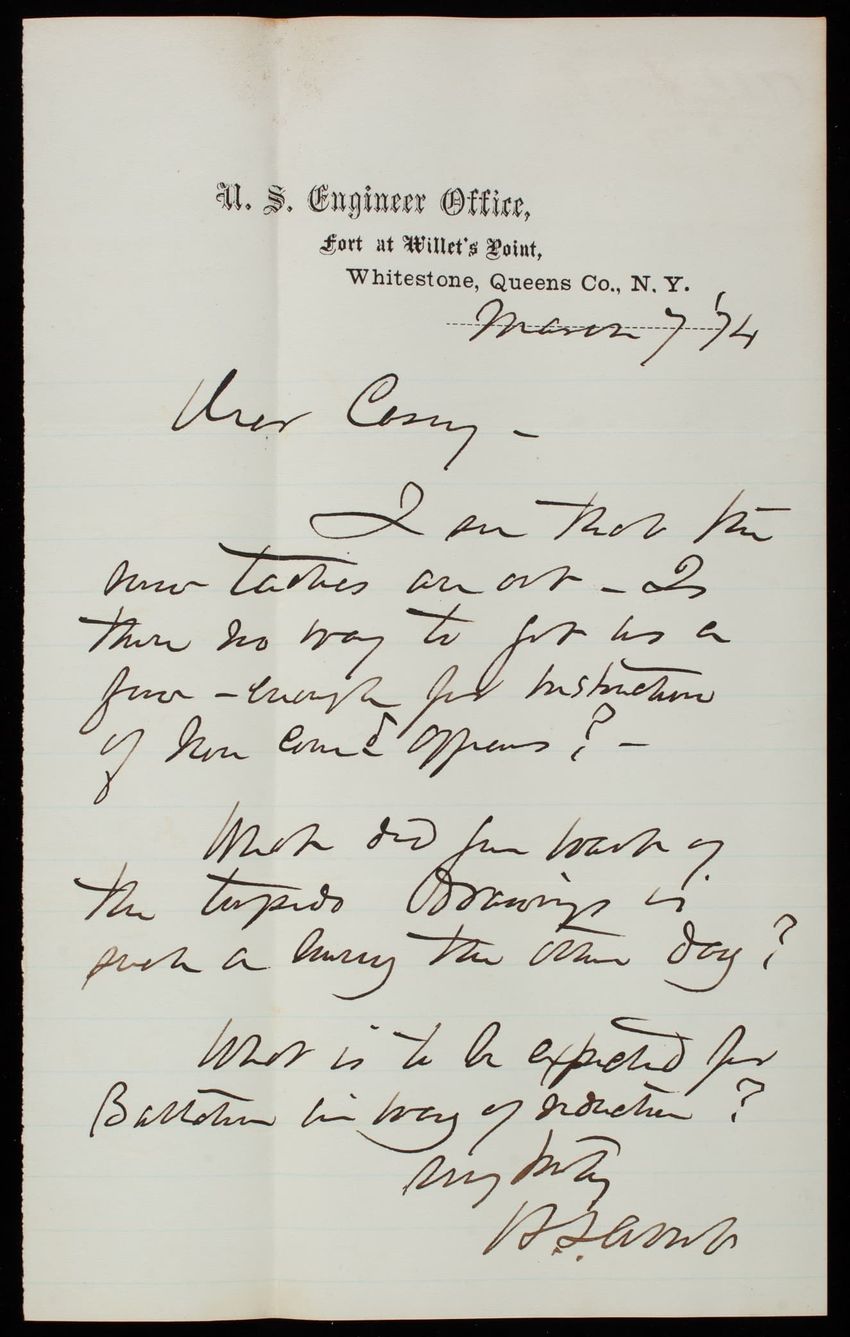 U. S. Engineer Office,
Fort at Willet's Point,
Whitestone, Queens Co., N. Y.
March 7 '74
Dear Casey -
I see that the
new tactics are out - Is
there no way to get us a
few - enough for instruction
of non com'd officers? -
What did you want of
the torpedo drawings in
such a hurry the other day?
What is to be expected for
Battalion in way of reduction?
Very truly
H. L. Abbot